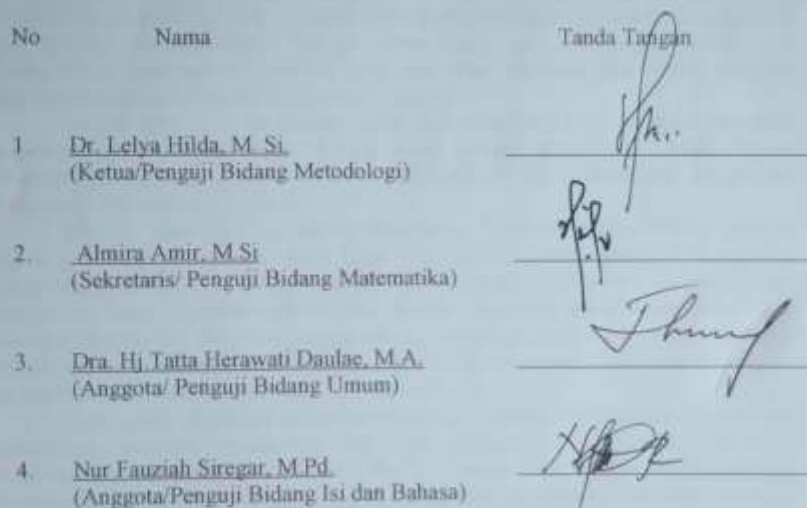 No Nama Tanda Tangan
1. Dr. Lelya Hilda, M. Si.
(Ketua/Penguji Bidang Metodologi)
2. Almira Amir, M.Si
(Sekretaris/ Penguji Bidang Matematika)
3. Dra. Hj Tatta Herawati Daulae, M.A.
(Anggota/ Penguji Bidang Umum)
4. Nur Fauziah Siregar, M.Pd.
(Anggota/Penguji Bidang Isi dan Bahasa)